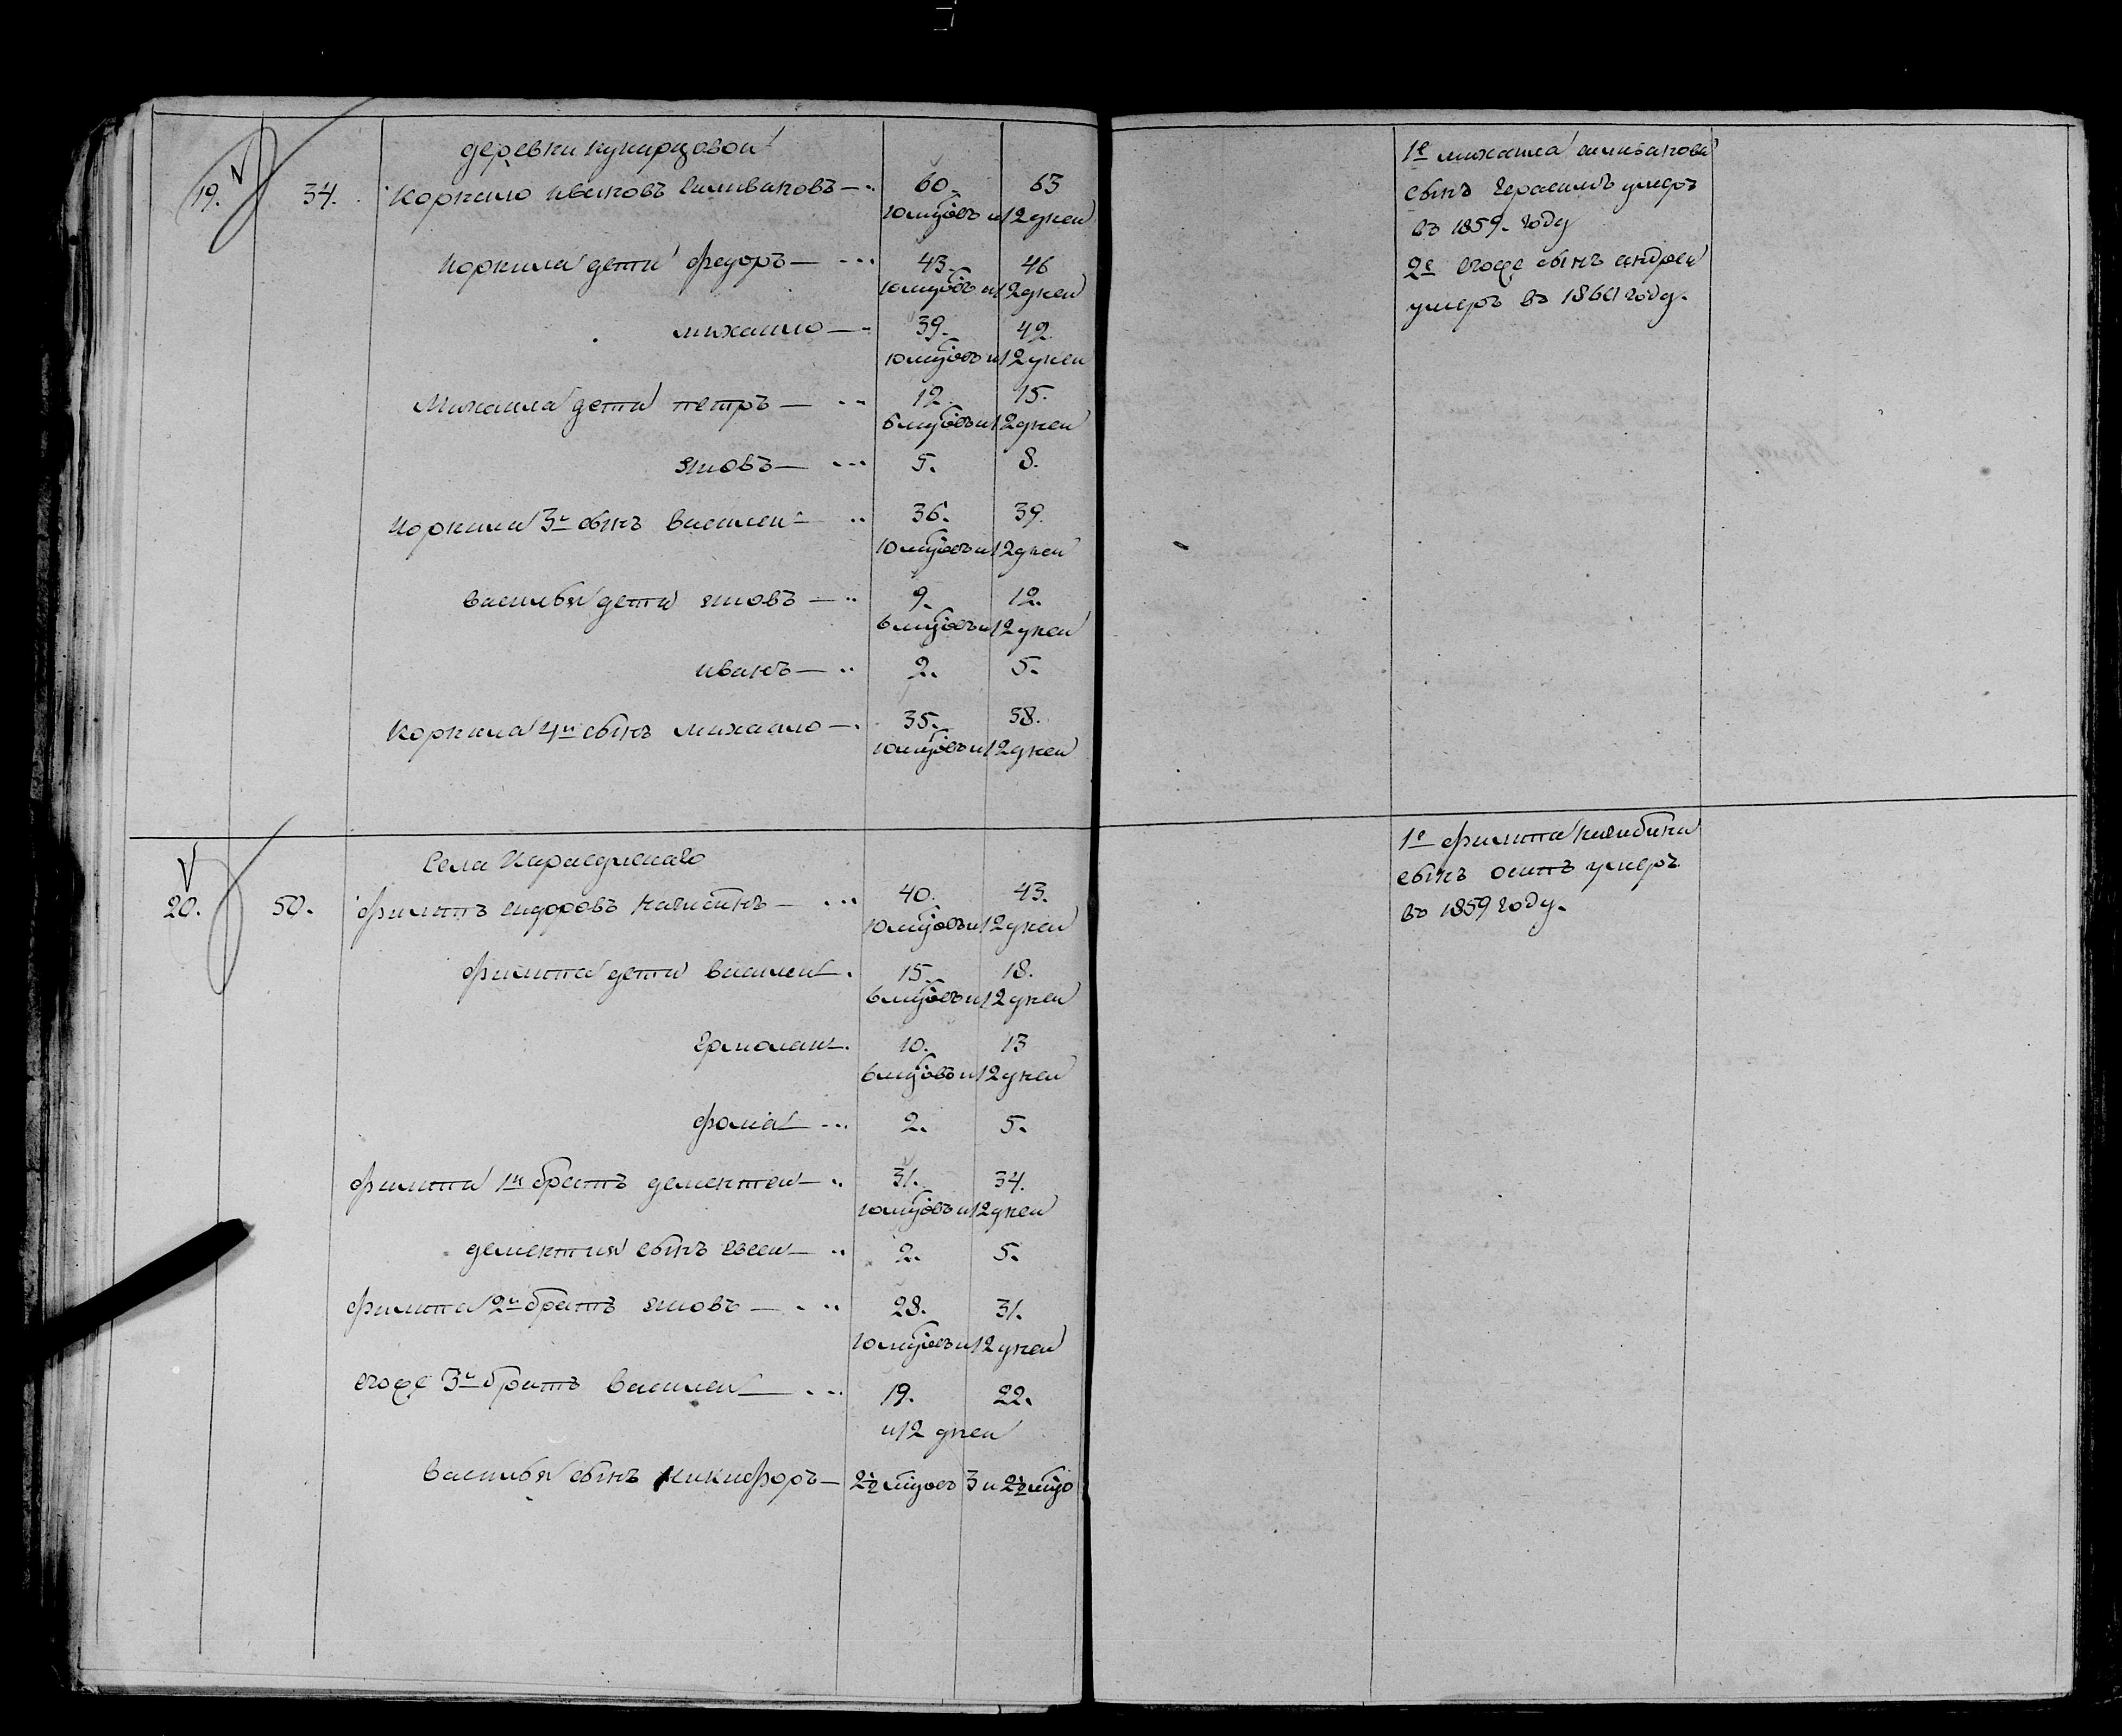 19. 34.
деревни
Корнило Ивановъ Силивановъ — 60. 63
10 мцовъ и 12 дней
Корнила дети Федоръ — 43. 46
10 мцовъ и 12 дней
михаило — 39. 42
10 мцовъ и 12 дней
Михаила дети петръ — 12. 15.
6 мцовъ и 12 дней
яковъ — 5. 8.
Корнила 3й сынъ василей 36. 39.
10 мцовъ и 12 дней
василья дети яковъ — 9. 12.
6 мцовъ и 12 дней
иванъ — 2. 5.
Корнила 4й сынъ михаило — 35. 38.
10 мцовъ и 12 дней
20. 50.
Села
филипъ сидоровъ — 40. 43.
10 мцовъ и 12 дней
филипа дети василей 15. 18.
6 мцовъ и 12 дней
Ермолай 10. 13
6 мцовъ и 12 дней
фома 2. 5.
филипа 1й братъ дементей — 31. 34.
10 мцовъ и 12 дней
дементия сынъ евсей — 2. 5.
филипа 2й братъ яковъ — 28. 31.
10 мцовъ и 12 дней
егоже 3й братъ василей — 19. 22.
и 12 дней
васильи сынъ никифоръ — 2½ мцовъ 3 и 2½ мцо
1е михаила силиванова
сынъ Герасимъ умеръ
въ 1859. году
2е егоже сынъ андрей
умеръ въ 1861 году.
1е филипа
сынъ осипъ умеръ
въ 1859 году.